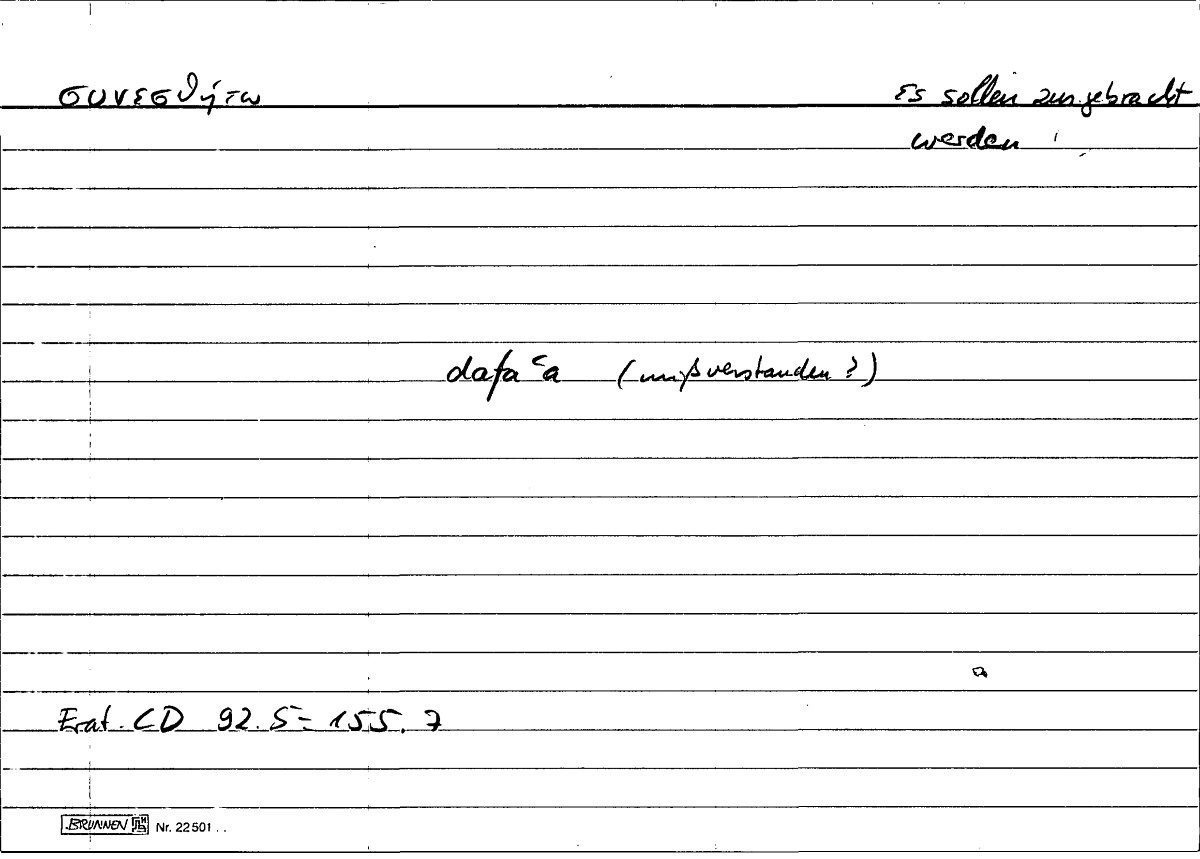 συνεσθήτω
Es sollen zusgebracht
werden
dafaʿa (mißverstanden?)
Erat. CD 92.5 = 155.7
BRUNNEN Nr. 22501